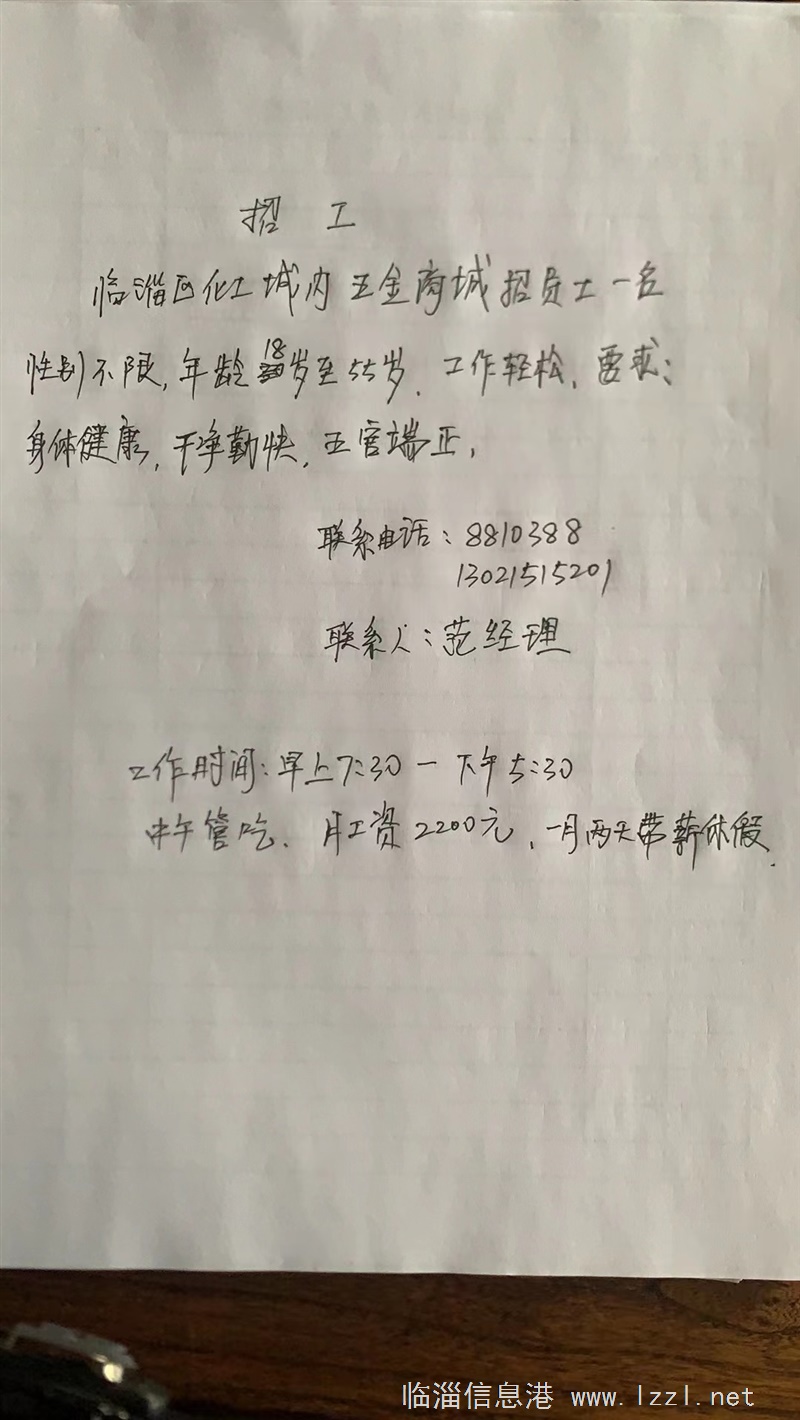 招 工
临淄区化工城内五金商城招员工一名
性别不限,年龄18岁至55岁.工作轻松,要求:
身体健康,干净勤快,五官端正,
联系电话:8810388
13021515201
联系人:范经理
工作时间:早上7:30-下午5:30
中午管吃.月工资2200元,一月两天带薪休假.
临淄信息港 www.lzzl.net